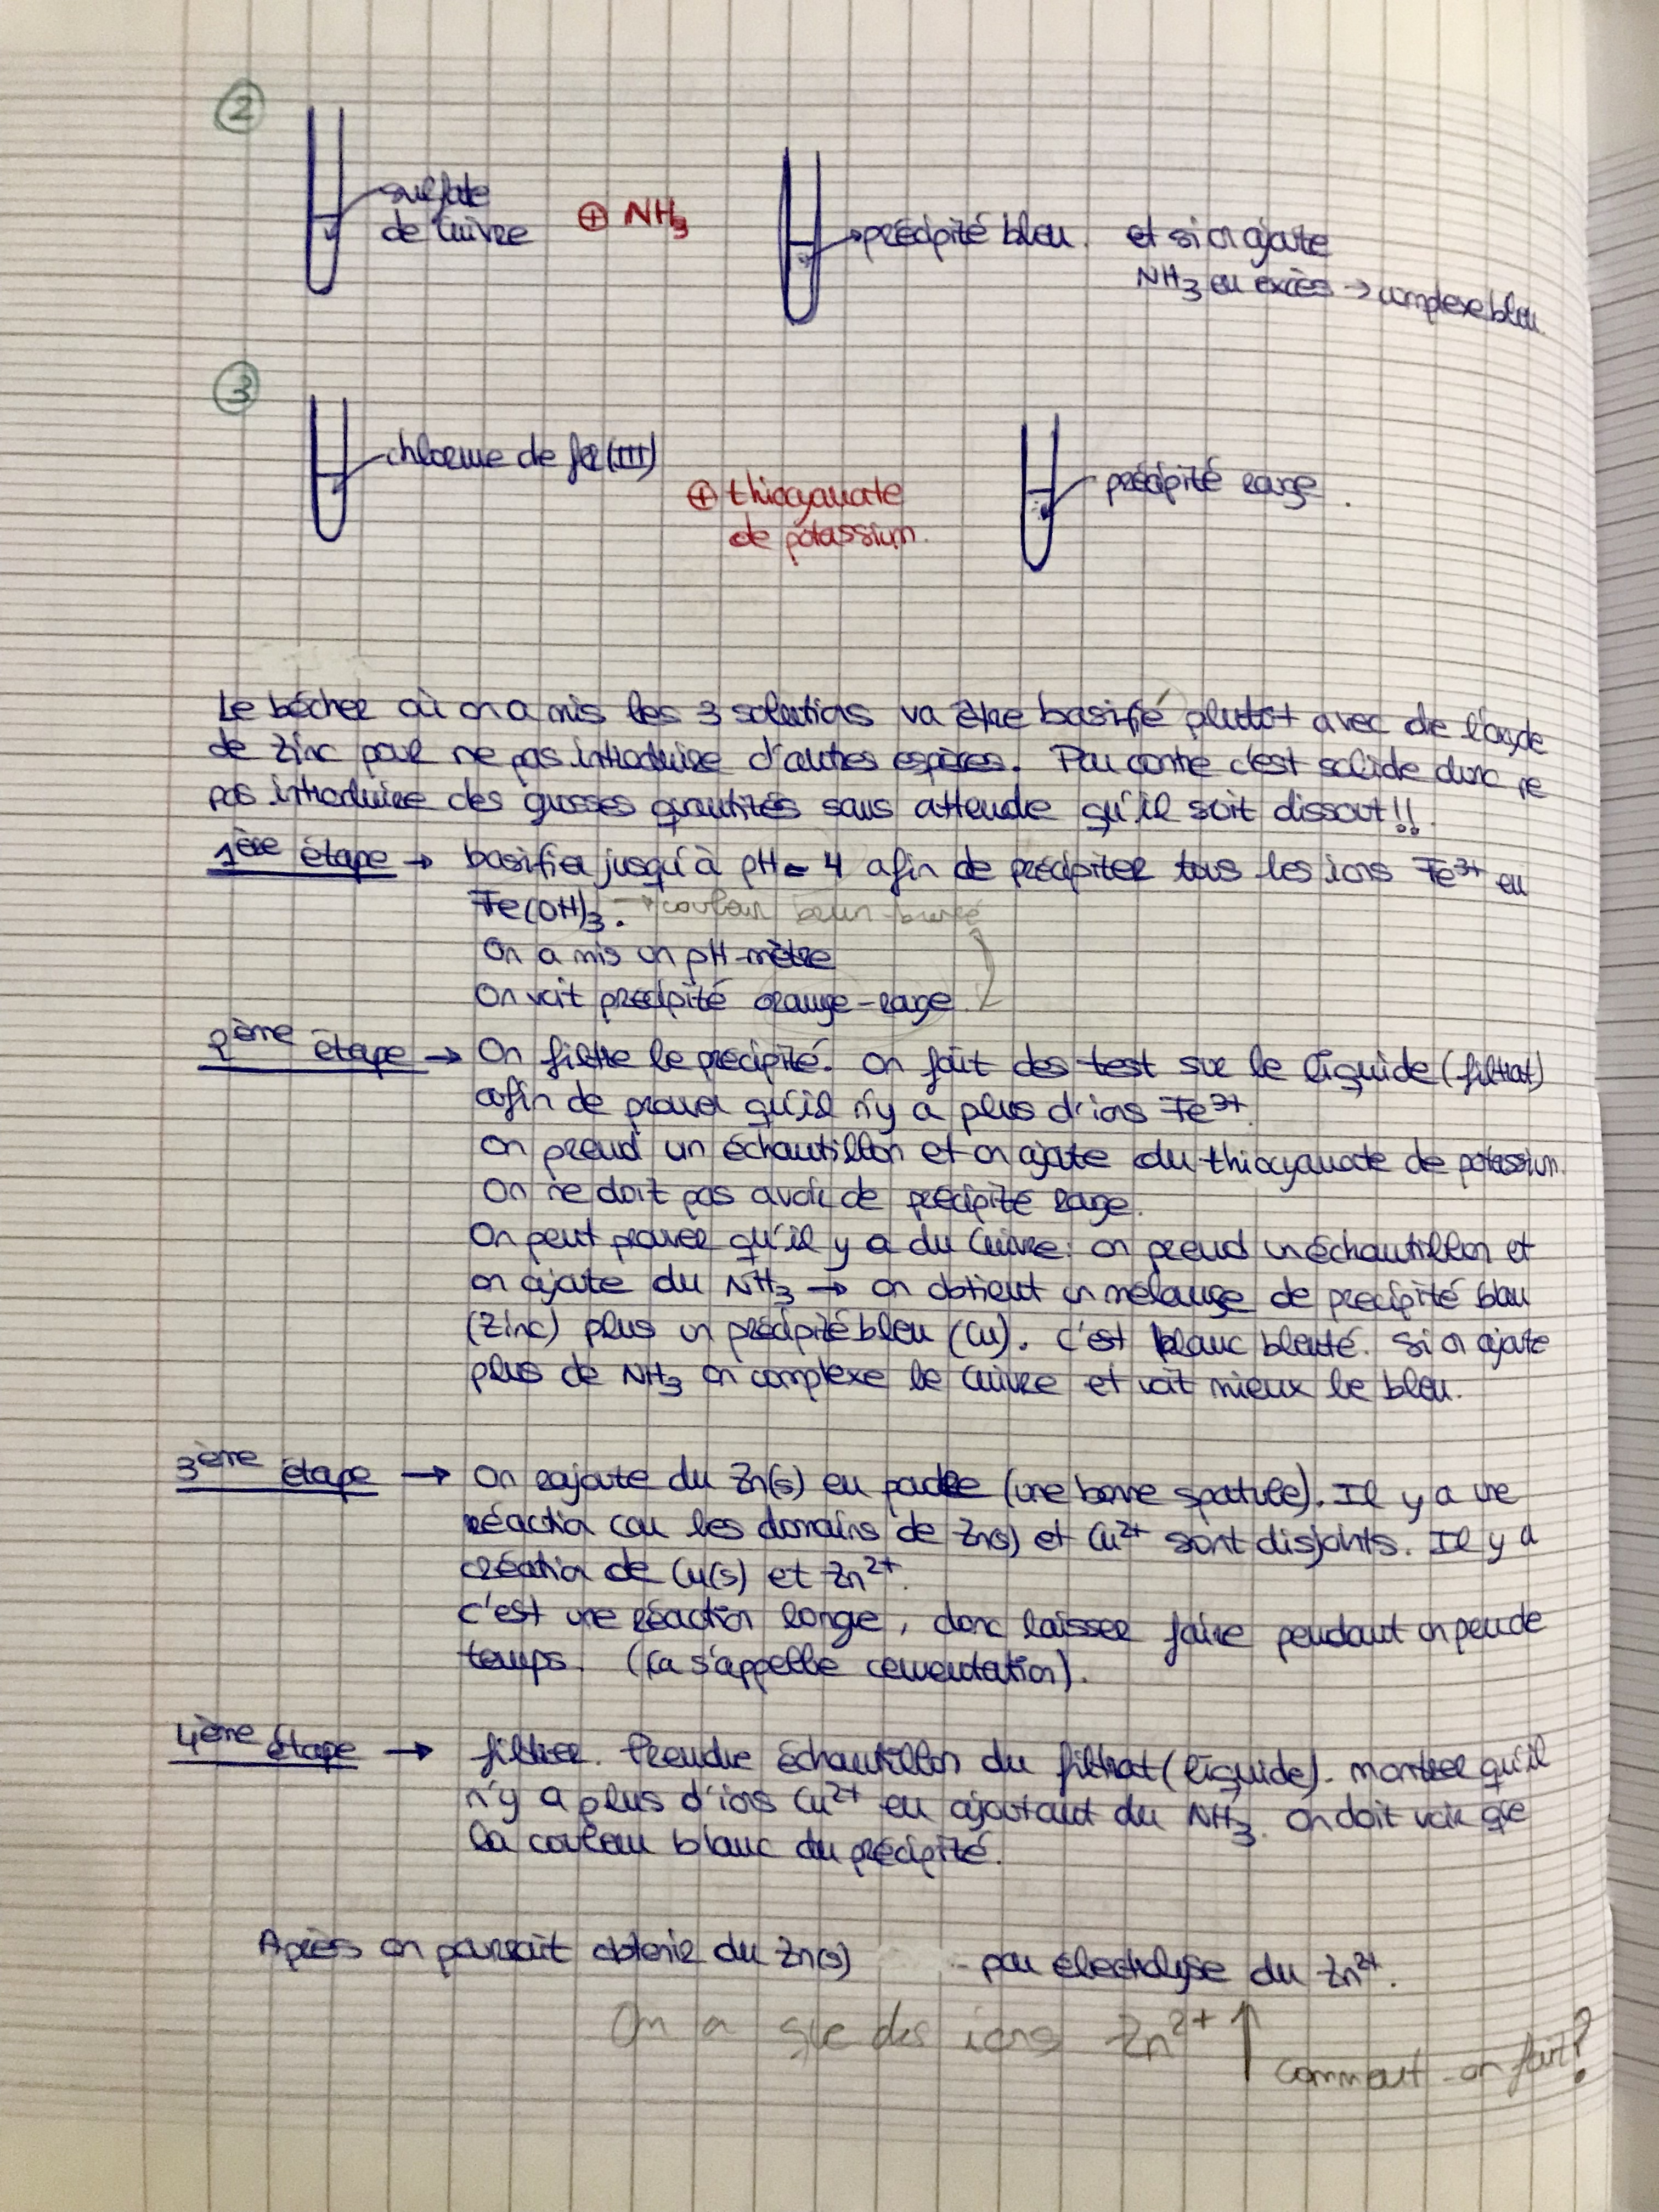 2
sulfate
de cuivre
⊕ NH3
précipité bleu. et si on ajoute
NH3 en excès → complexe bleu
3
chlorure de fer (III)
⊕ thiocyanate
de potassium.
précipité rouge.
Le bécher où on a mis les 3 solutions va être basifié plutôt avec de l'oxyde
de zinc pour ne pas introduire d'autres espèces. Par contre c'est solide donc ne
pas introduire des grosses quantités sans attendre qu'il soit dissout!!
1ère étape → basifier jusqu'à pH = 4 afin de précipiter tous les ions Fe3+ en
Fe(OH)3. → couleur brun-
On a mis un pH-mètre
On voit précipité orange-rouge
2ème étape → On filtre le précipité. On fait des test sur le liquide (filtrat)
afin de prouver qu'il n'y a plus d'ions Fe3+.
On prend un échantillon et on ajoute du thiocyanate de potassium.
On ne doit pas avoir de précipité rouge.
On peut prouver qu'il y a du cuivre: on prend un échantillon et
on ajoute du NH3 → on obtient un mélange de précipité blanc
(zinc) plus un précipité bleu (Cu). C'est blanc bleuté. Si on ajoute
plus de NH3 on complexe le cuivre et voit mieux le bleu.
3ème étape → On rajoute du Zn(s) en poudre (une bonne spatule). Il y a une
réaction car les domains de Zn(s) et Cu2+ sont disjoints. Il y a
création de Cu(s) et Zn2+.
C'est une réaction longue, donc laisser faire pendant un peu de
temps. (ça s'appelle cementation).
4ème étape → filtrer. Prendre échantillon du filtrat (liquide). montrer qu'il
n'y a plus d'ions Cu2+ en ajoutant du NH3. On doit voir que
la couleur blanc du précipité.
Après on pourrait obtenir du Zn(s) par électrolyse du Zn2+.
On a que des ions Zn2+ ↑ comment on fait?